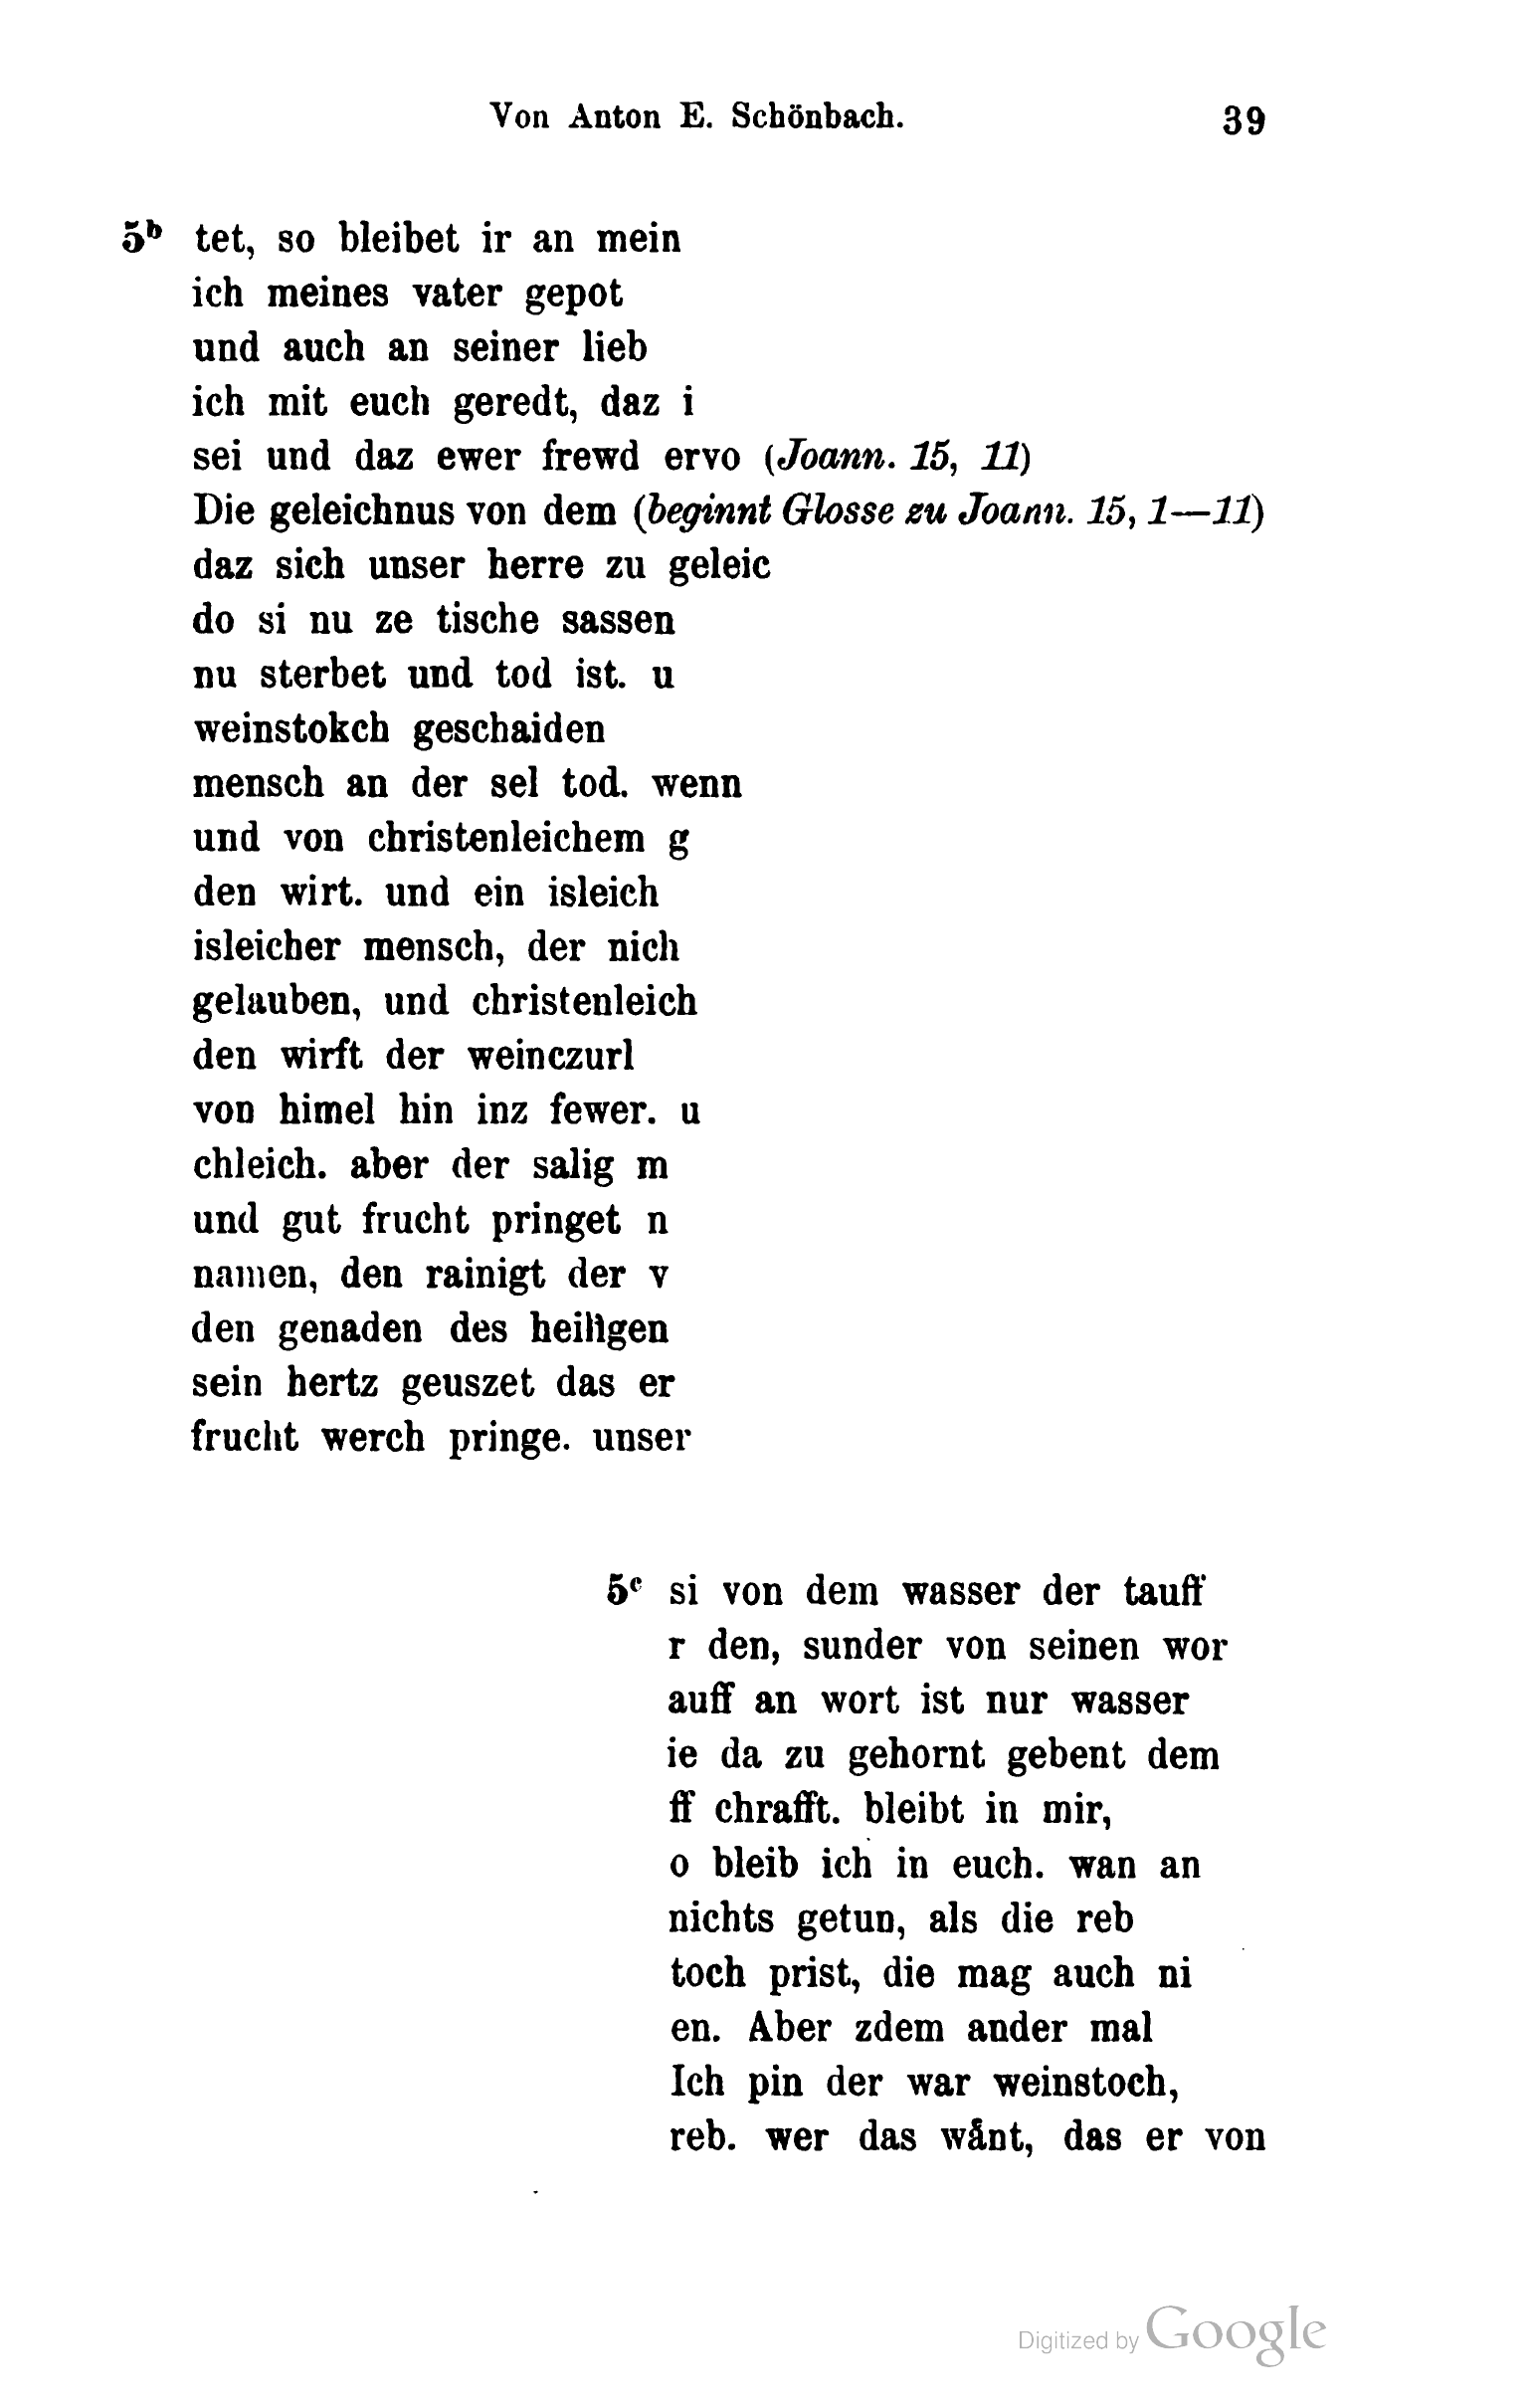 Von Anton E. Schönbach. 39
5ᵇ tet, so bleibet ir an mein
ich meines vater gepot
und auch an seiner lieb
ich mit euch geredt, daz i
sei und daz ewer frewd ervo (Joann. 15, 11)
Die geleichnus von dem (beginnt Glosse zu Joann. 15, 1—11)
daz sich unser herre zu geleic
do si nu ze tische sassen
nu sterbet und tod ist. u
weinstokch geschaiden
mensch an der sel tod. wenn
und von christenleichem g
den wirt. und ein isleich
isleicher mensch, der nich
gelauben, und christenleich
den wirft der weinczurl
von himel hin inz fewer. u
chleich. aber der salig m
und gut frucht pringet n
namen, den rainigt der v
den genaden des heiligen
sein hertz geuszet das er
frucht werch pringe. unser
5ᶜ si von dem wasser der tauff
r den, sunder von seinen wor
auff an wort ist nur wasser
ie da zu gehornt gebent dem
ff chrafft. bleibt in mir,
o bleib ich in euch. wan an
nichts getun, als die reb
toch prist, die mag auch ni
en. Aber zdem ander mal
Ich pin der war weinstoch,
reb. wer das wånt, das er von
Digitized by Google